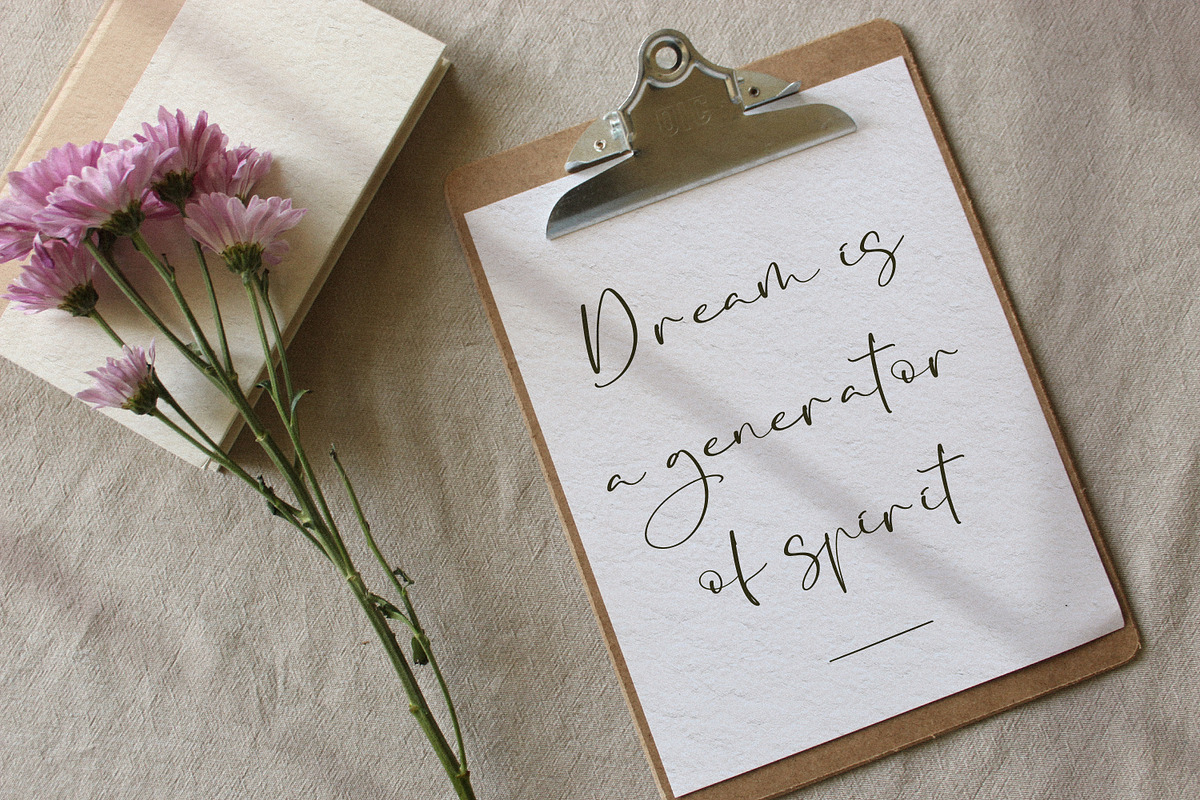 Dream is
a generator
of spirit